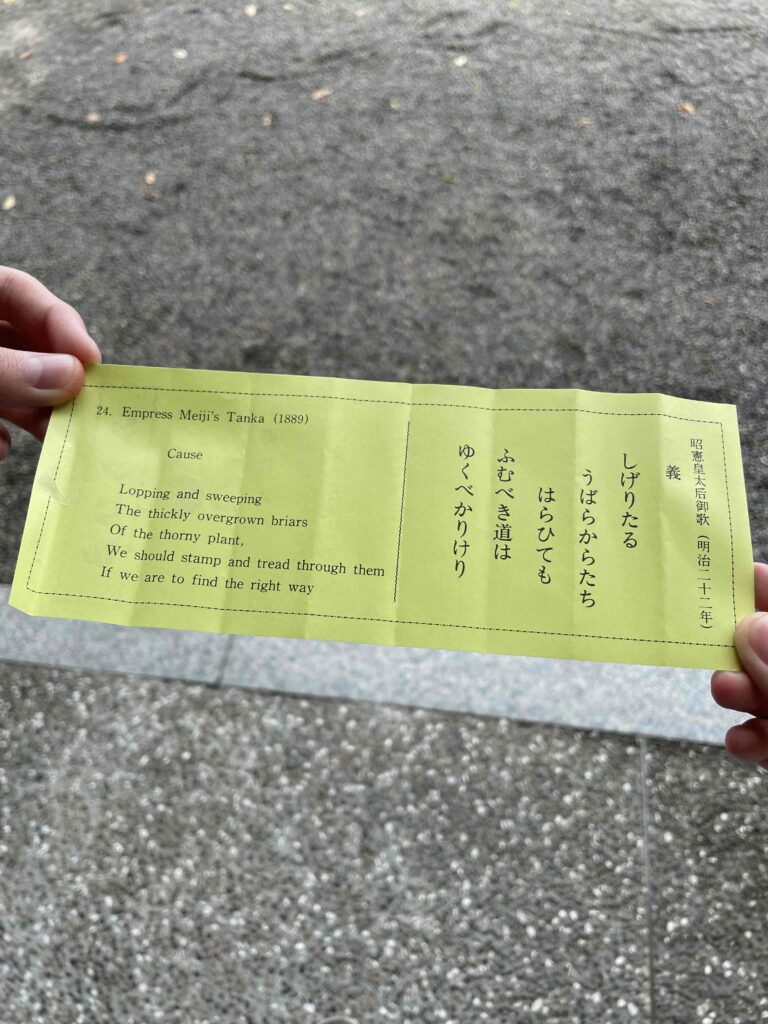 24. Empress Meiji's Tanka (1889)
Cause
Lopping and sweeping
The thickly overgrown briars
Of the thorny plant,
We should stamp and tread through them
If we are to find the right way
昭憲皇太后御歌（明治二十二年）
義
しげりたる
うばらからたち
はらひても
ふむべき道は
ゆくべかりけり